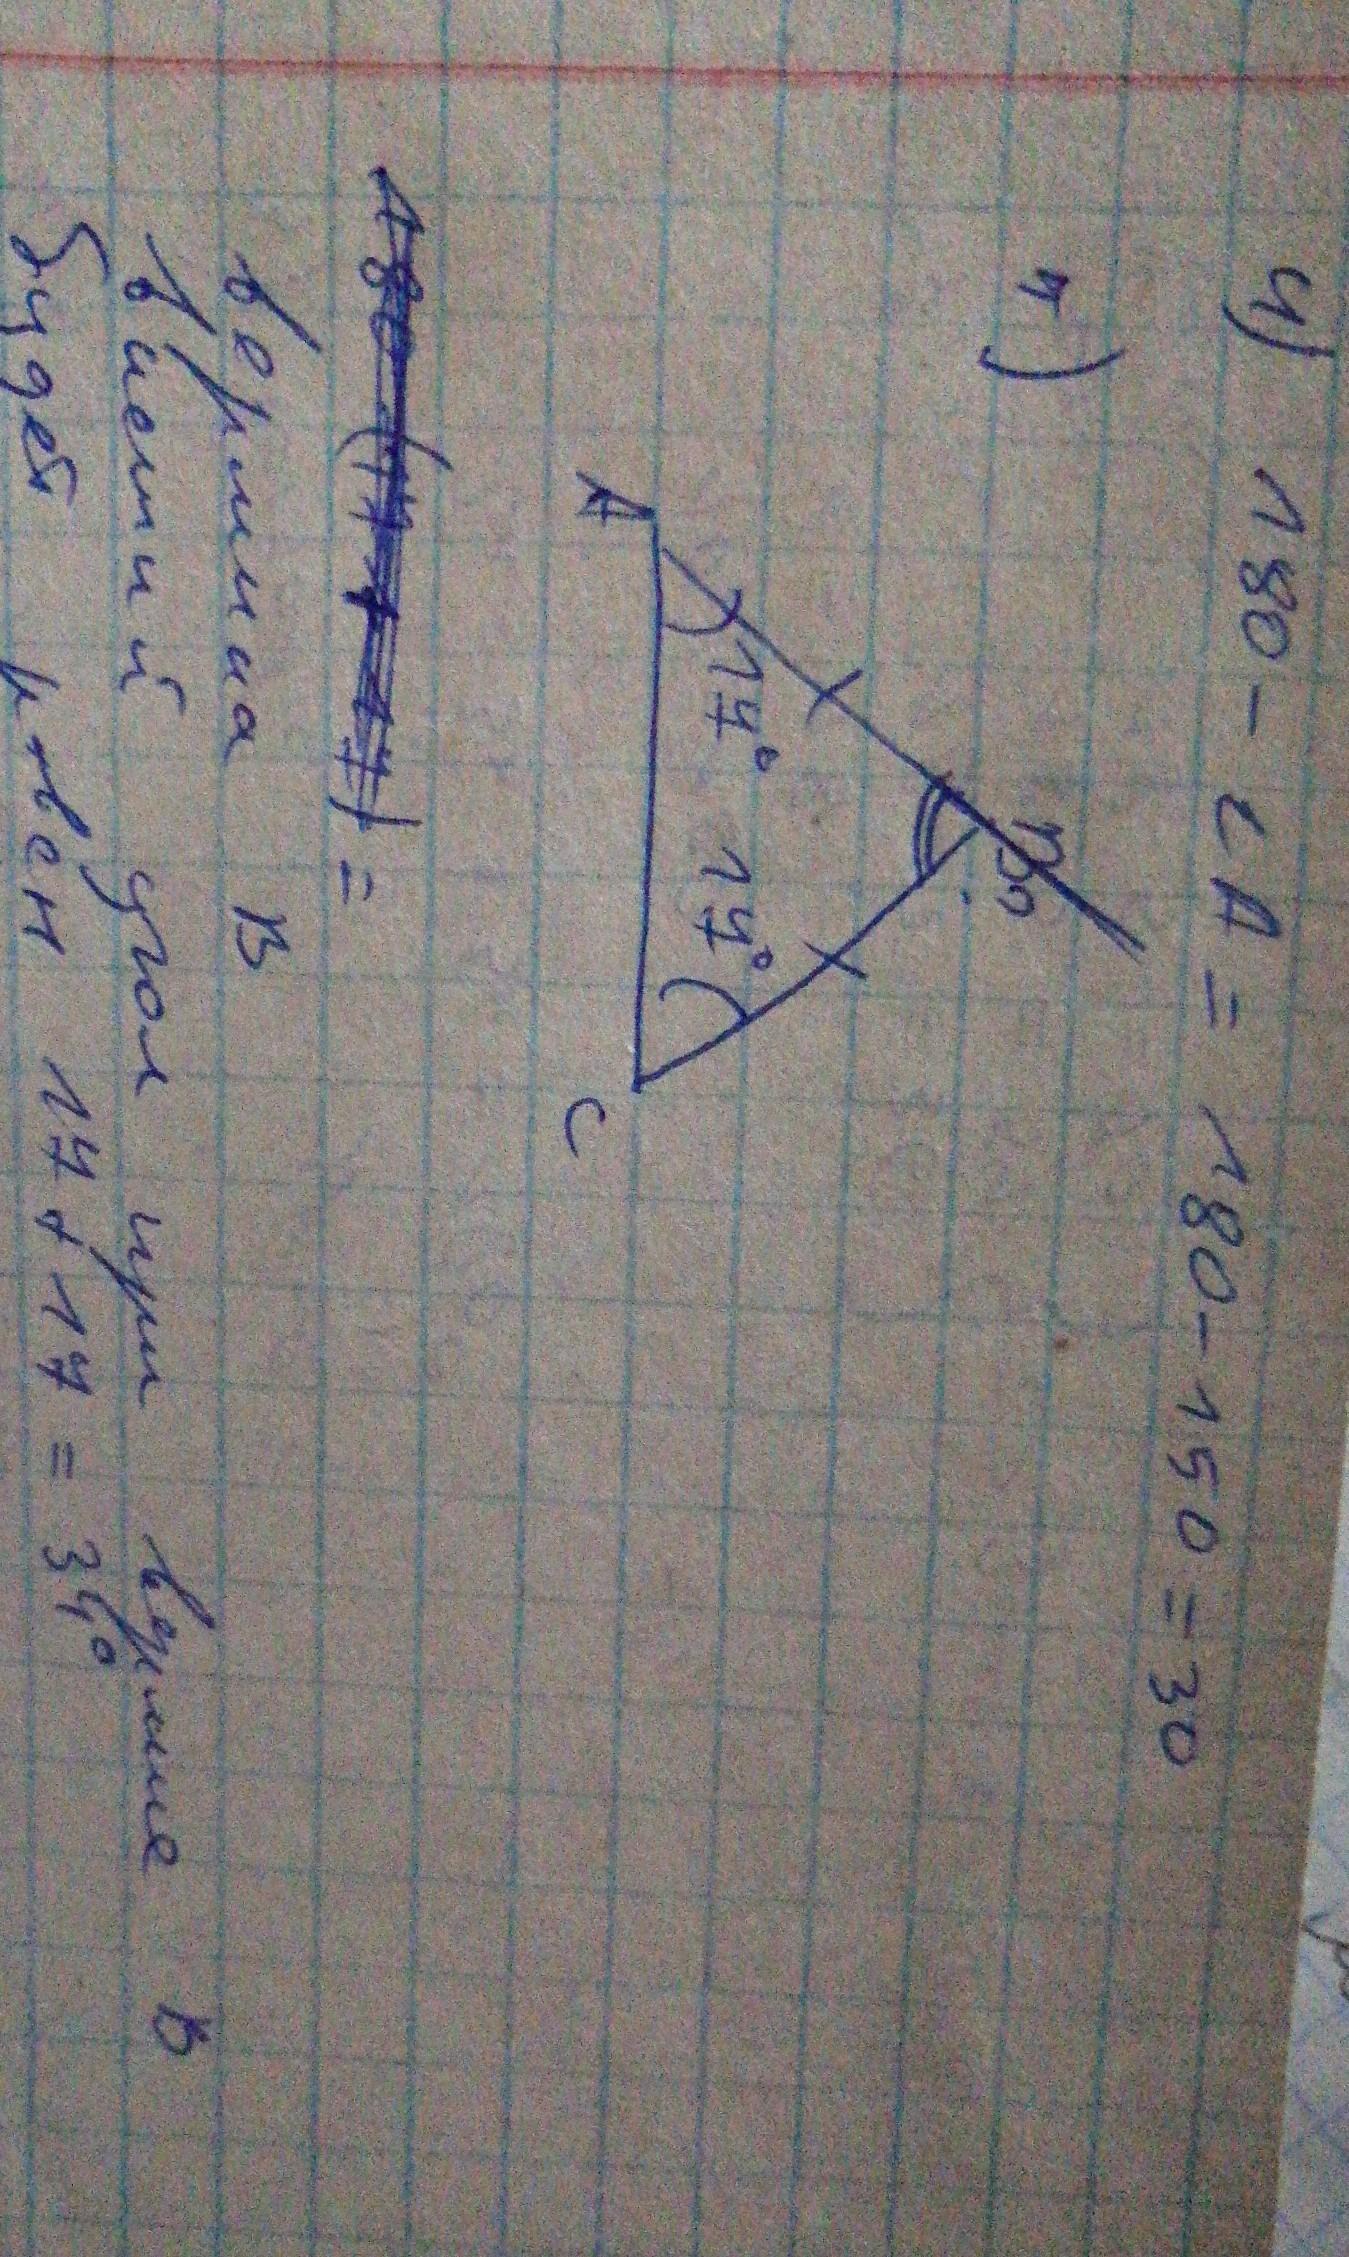 4) 180 - ∠A = 180 - 150 = 30
г)
B
17° 17°
A C
180 - (17 + 17) =
вершина B
Внешний угол при вершине B
будет равен 17 + 17 = 34°